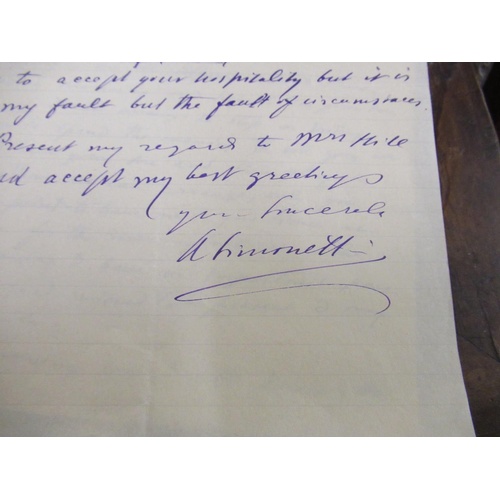 to accept your hospitality but it is
my fault but the fault of circumstances.
Present my regards to Mrs Hill
accept my best greetings
your Sincerely
A Simonetti